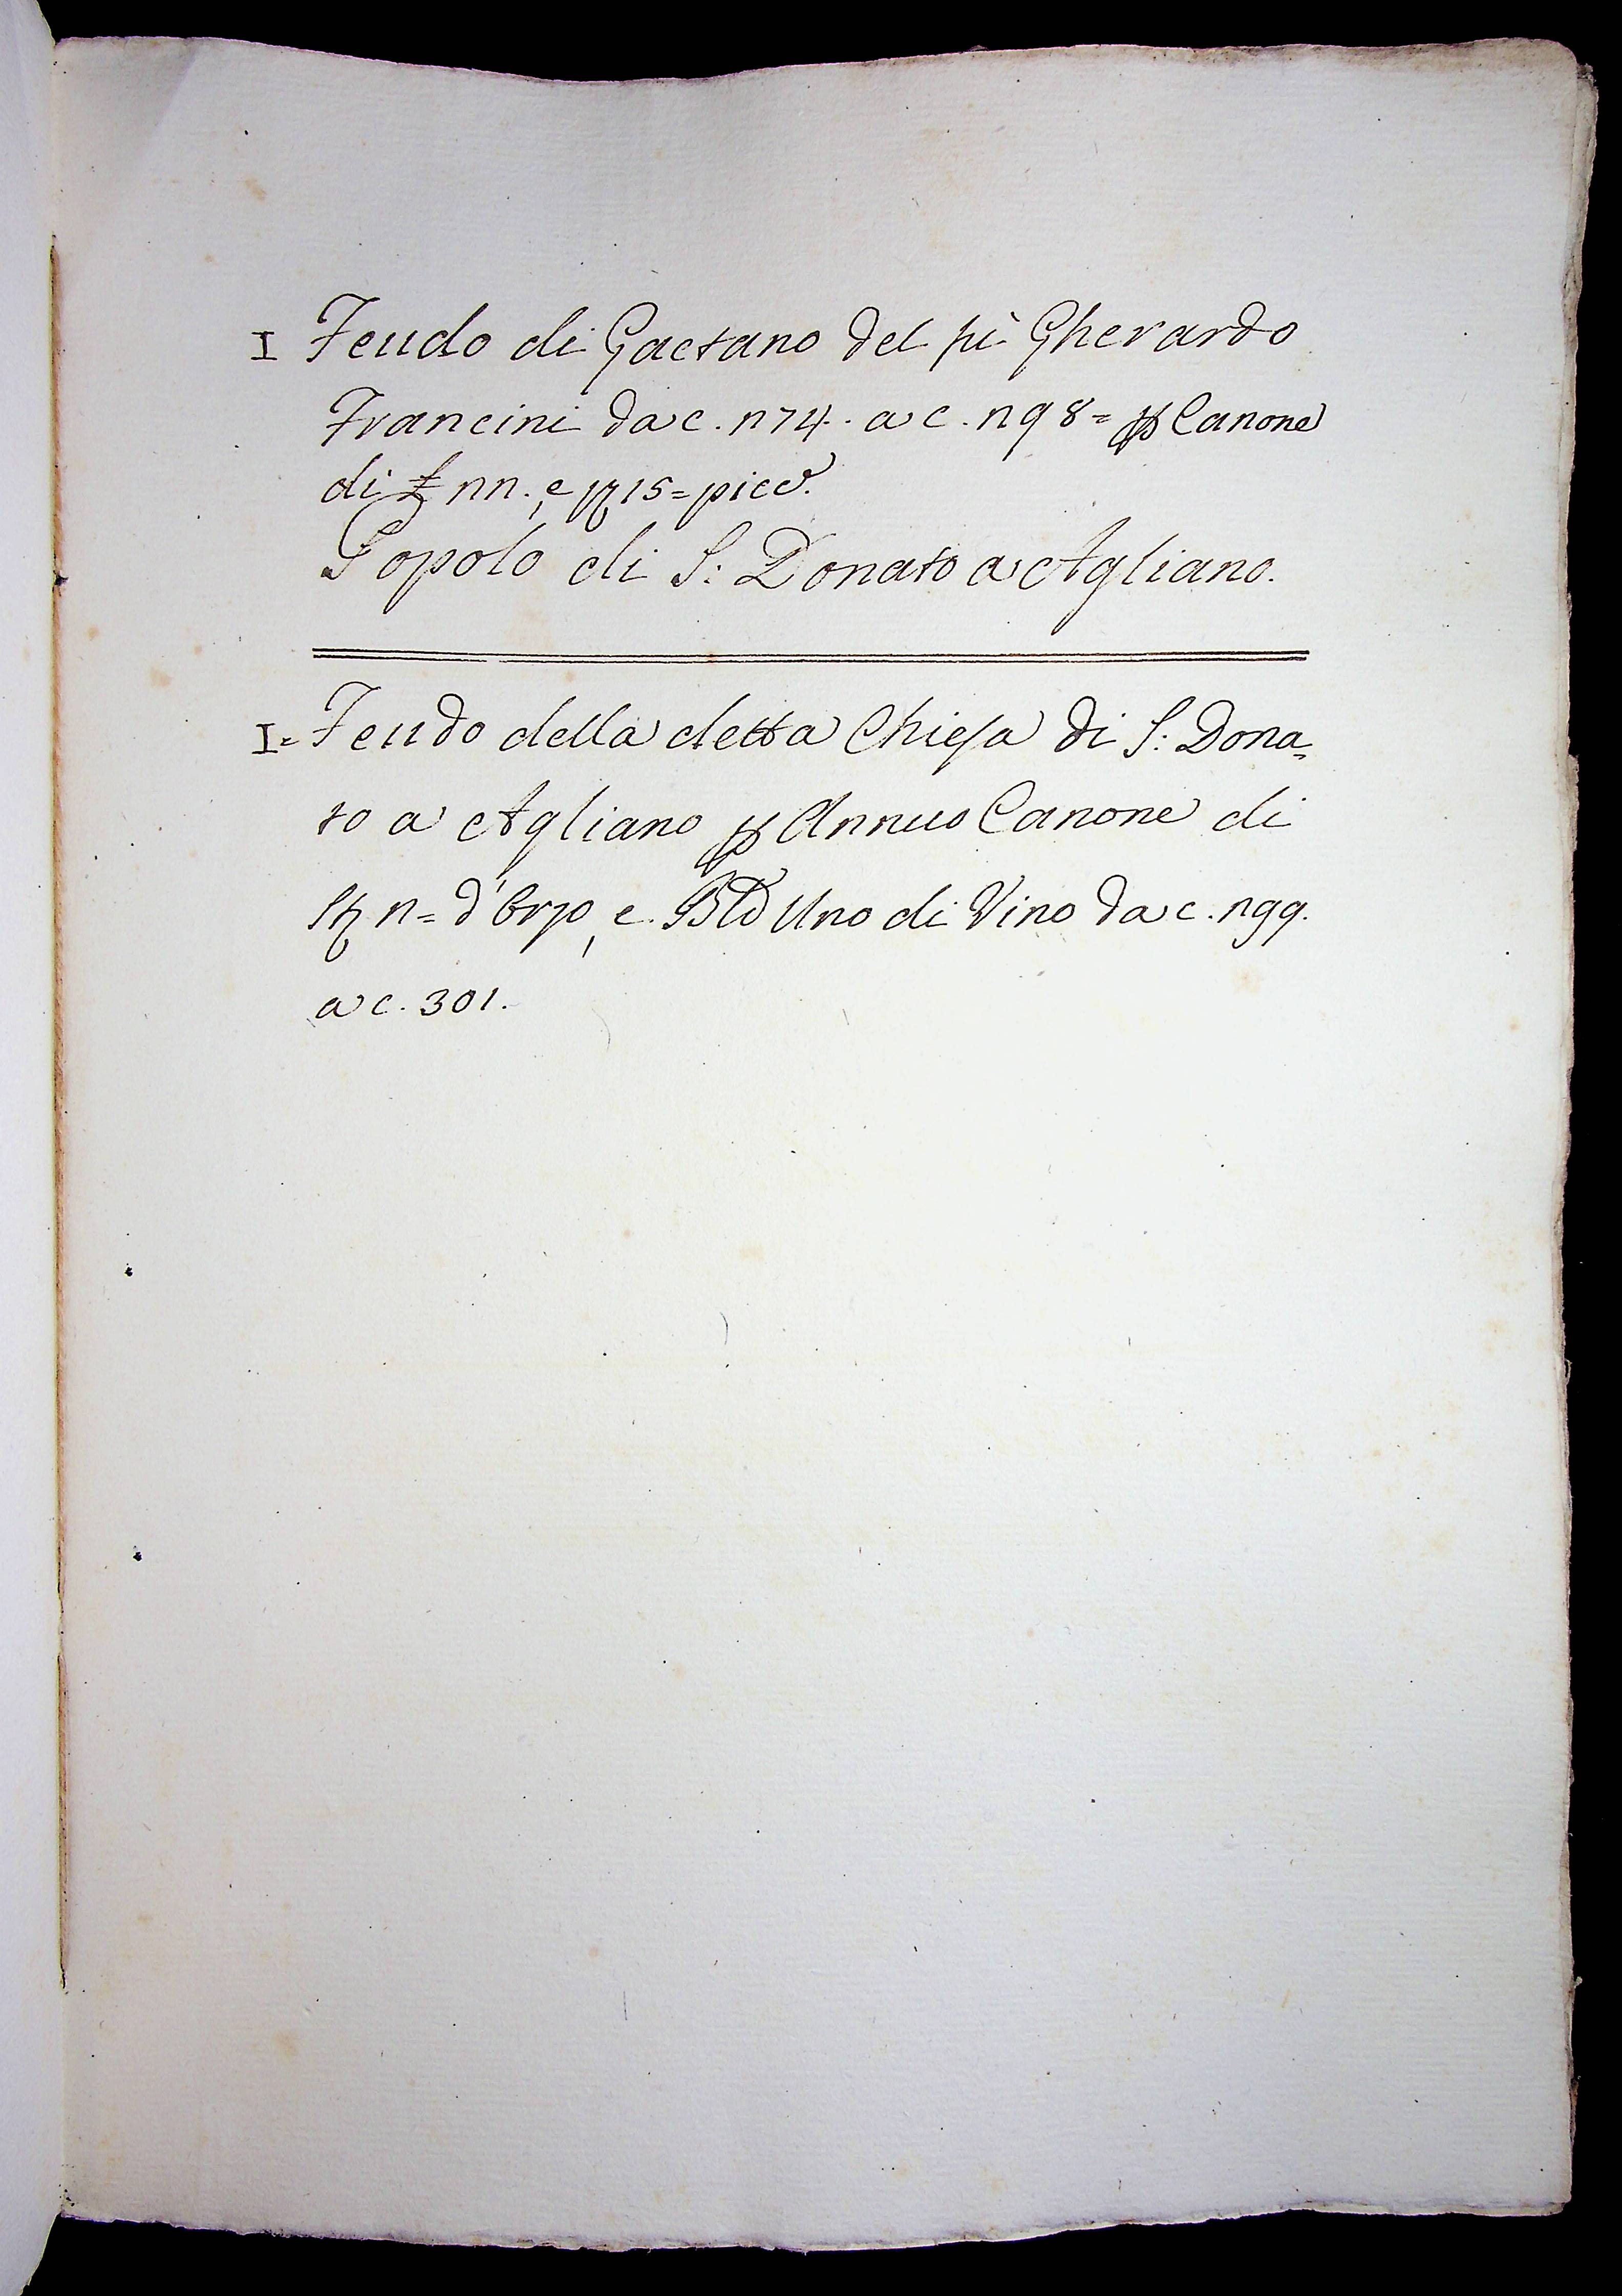 I Feudo di Gaetano del fù Gherardo
Francini da c. 274. a c. 298 = ꝑ Canone
di £ 22. e 15 = picc.
Popolo di S: Donato a Agliano.
I = Feudo della detta Chiesa di S: Dona=
to a Agliano ꝑ Annuo Canone di
St 2 = d'Orzo, e Uno di Vino da c. 299.
a c. 301.